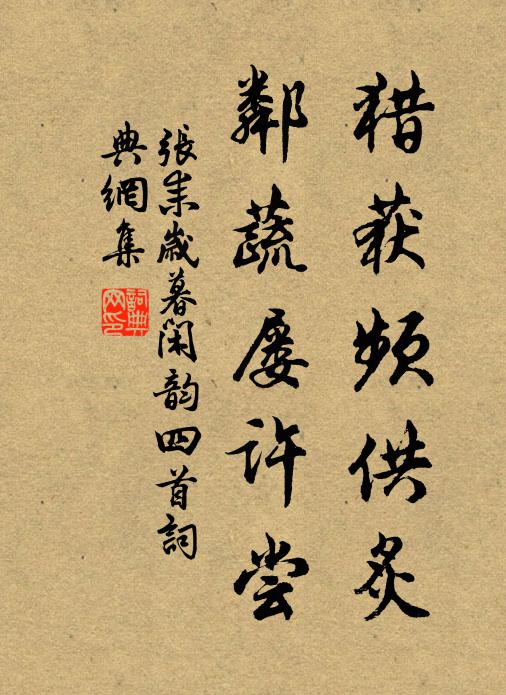 猎获频供炙
鄰蔬屡许尝
張耒歲暮閑韵四首詞
典網集
詞典網印